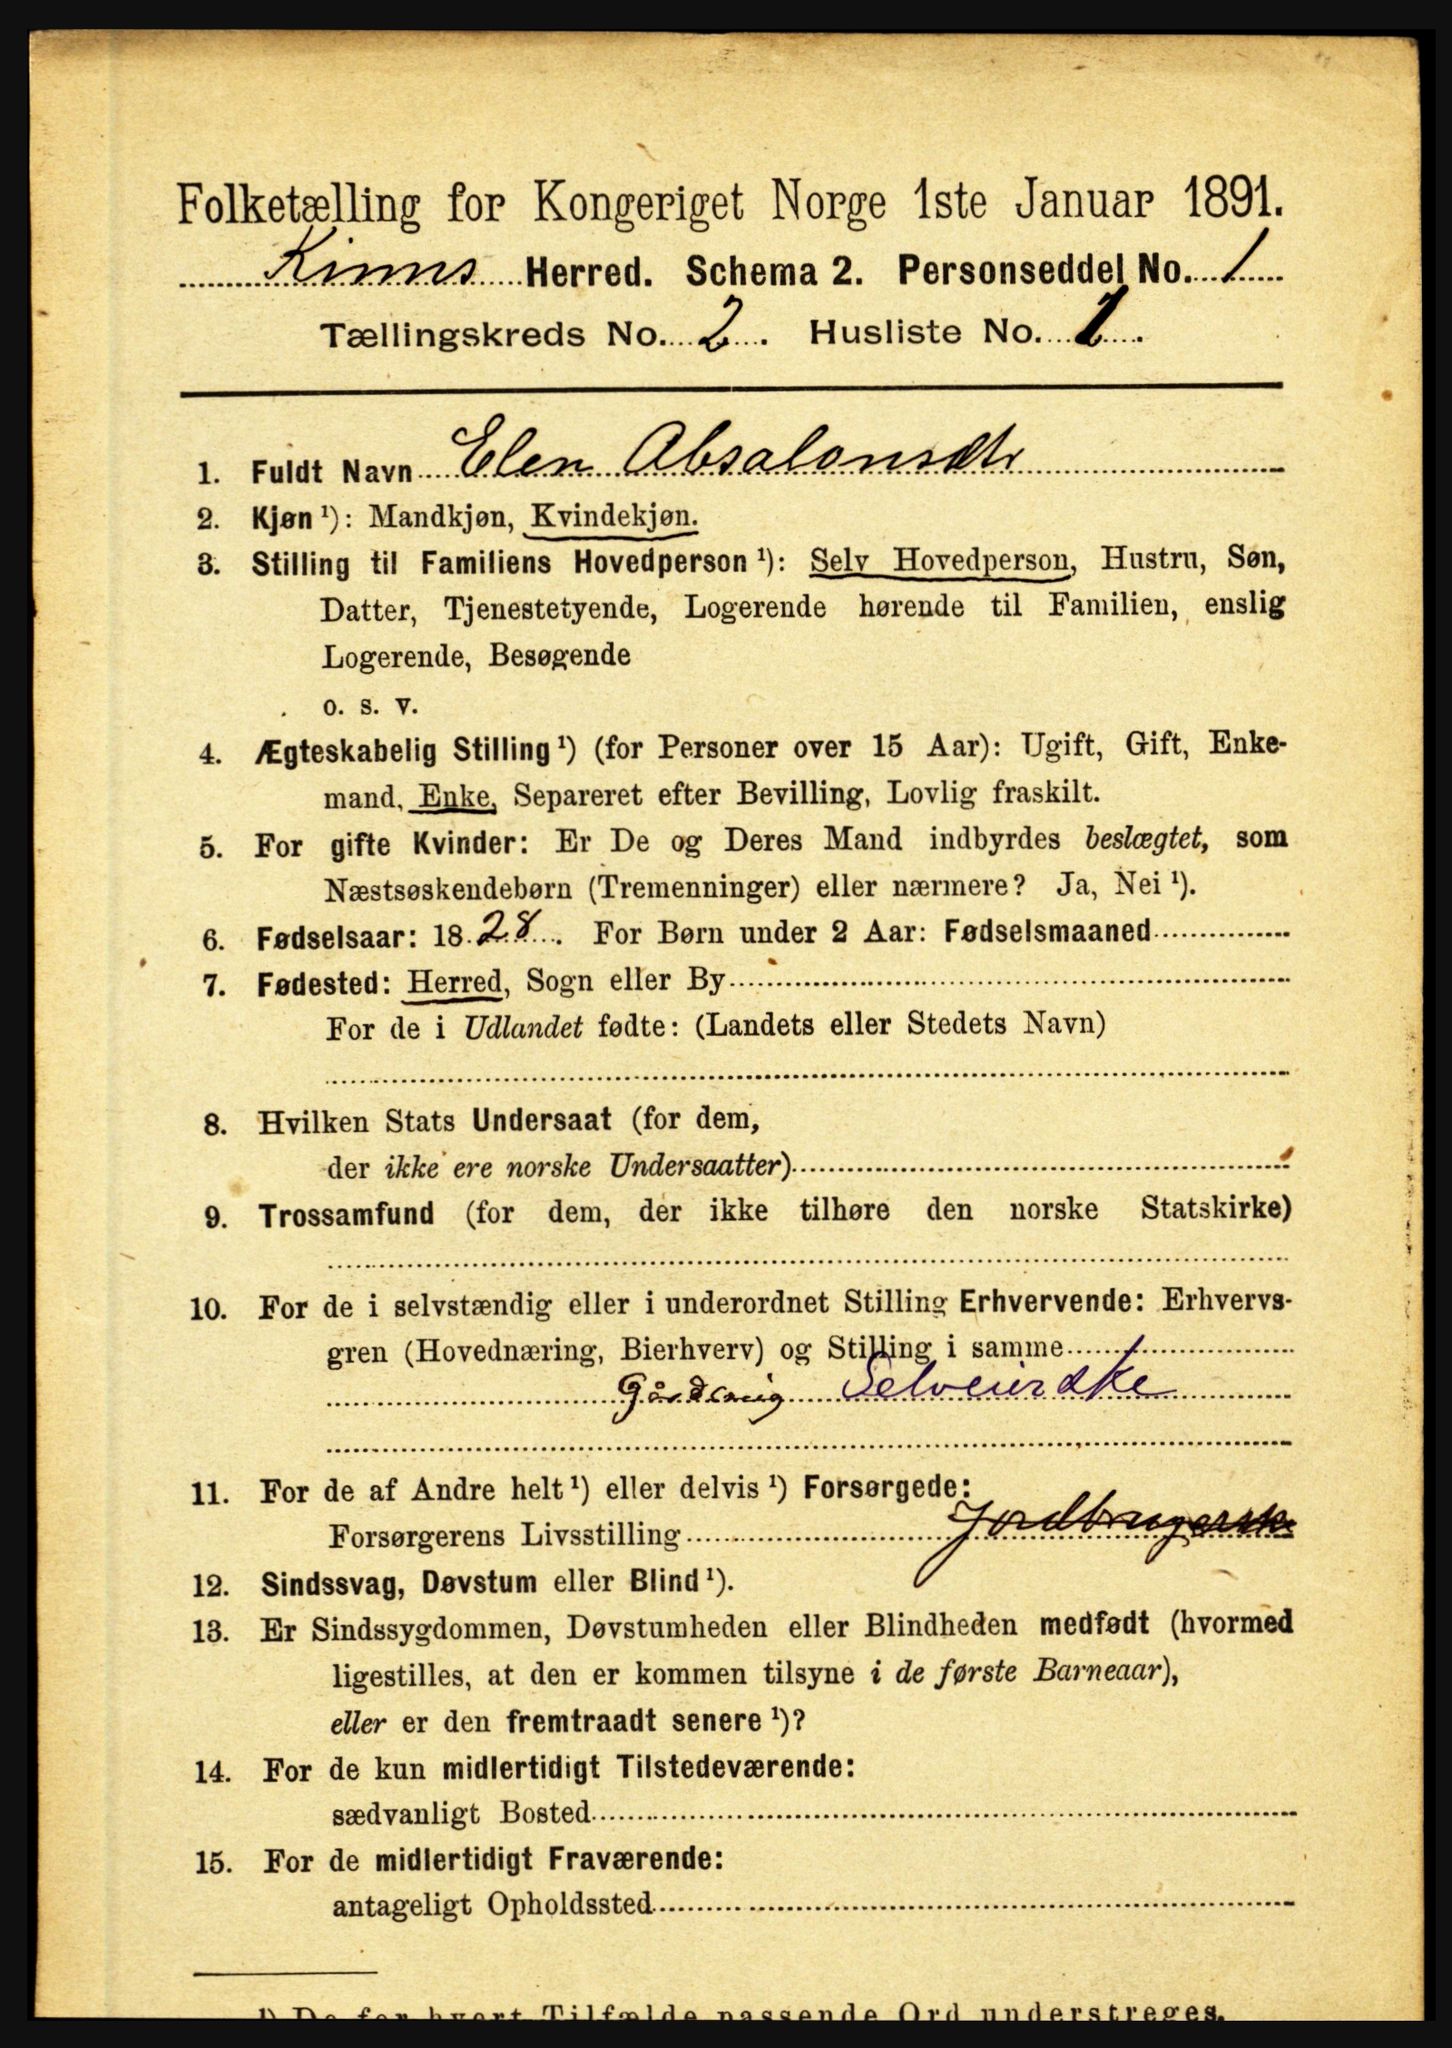 Folketælling for Kongeriget Norge 1ste Januar 1891.
Kinns Herred. Schema 2. Personseddel No. 1
Tællingskreds No. 2. Husliste No. 1.
1. Fuldt Navn Elen Absalonsdtr
2. Kjøn ¹): Mandkjøn, Kvindekjøn.
3. Stilling til Familiens Hovedperson ¹): Selv Hovedperson, Hustru, Søn,
Datter, Tjenestetyende, Logerende hørende til Familien, enslig
Logerende, Besøgende
o. s. v.
4. Ægteskabelig Stilling ¹) (for Personer over 15 Aar): Ugift, Gift, Enke-
mand, Enke, Separeret efter Bevilling, Lovlig fraskilt.
5. For gifte Kvinder: Er De og Deres Mand indbyrdes beslægtet, som
Næstsøskendebørn (Tremenninger) eller nærmere? Ja, Nei ¹).
6. Fødselsaar: 1828. For Børn under 2 Aar: Fødselsmaaned
7. Fødested: Herred, Sogn eller By
For de i Udlandet fødte: (Landets eller Stedets Navn)
8. Hvilken Stats Undersaat (for dem,
der ikke ere norske Undersaatter)
9. Trossamfund (for dem, der ikke tilhøre den norske Statskirke)
10. For de i selvstændig eller i underordnet Stilling Erhvervende: Erhvervs-
gren (Hovednæring, Bierhverv) og Stilling i samme
Selveierske
11. For de af Andre helt ¹) eller delvis ¹) Forsørgede:
Forsørgerens Livsstilling Jordbrugerske
12. Sindssvag, Døvstum eller Blind ¹).
13. Er Sindssygdommen, Døvstumheden eller Blindheden medfødt (hvormed
ligestilles, at den er kommen tilsyne i de første Barneaar),
eller er den fremtraadt senere ¹)?
14. For de kun midlertidigt Tilstedeværende:
sædvanligt Bosted
15. For de midlertidigt Fraværende:
antageligt Opholdssted
¹) De for hvert Tilfælde passende Ord understreges.